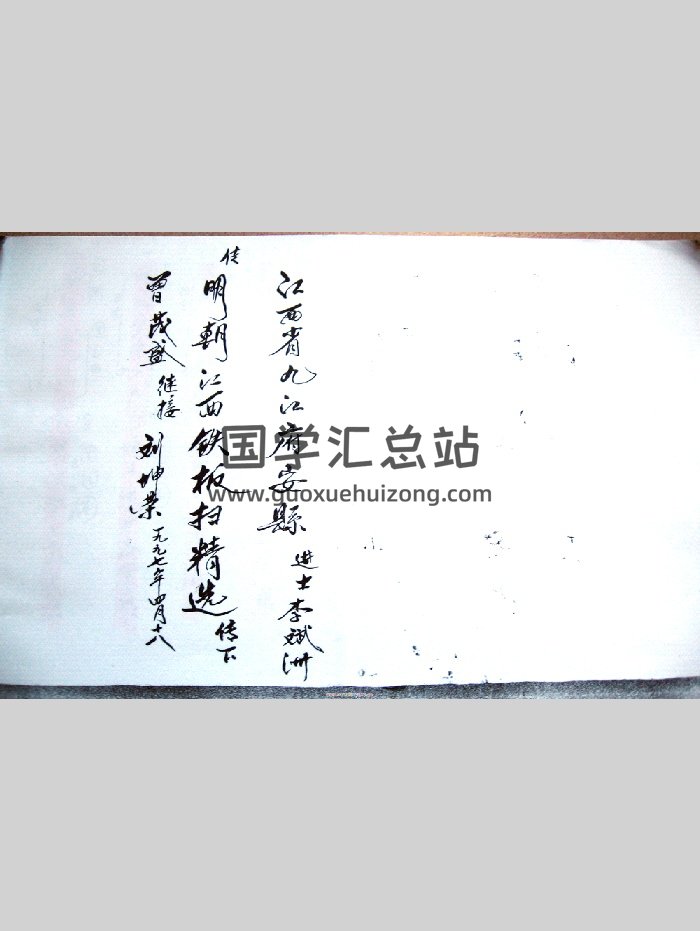 江西省九江府安縣 进士李斌洲
佳 明朝江西铁板扫精选 传下
曾茂盛 继接 刘坤荣 一九九七年四月十八
国学汇总站
www.guoxuehuizong.com